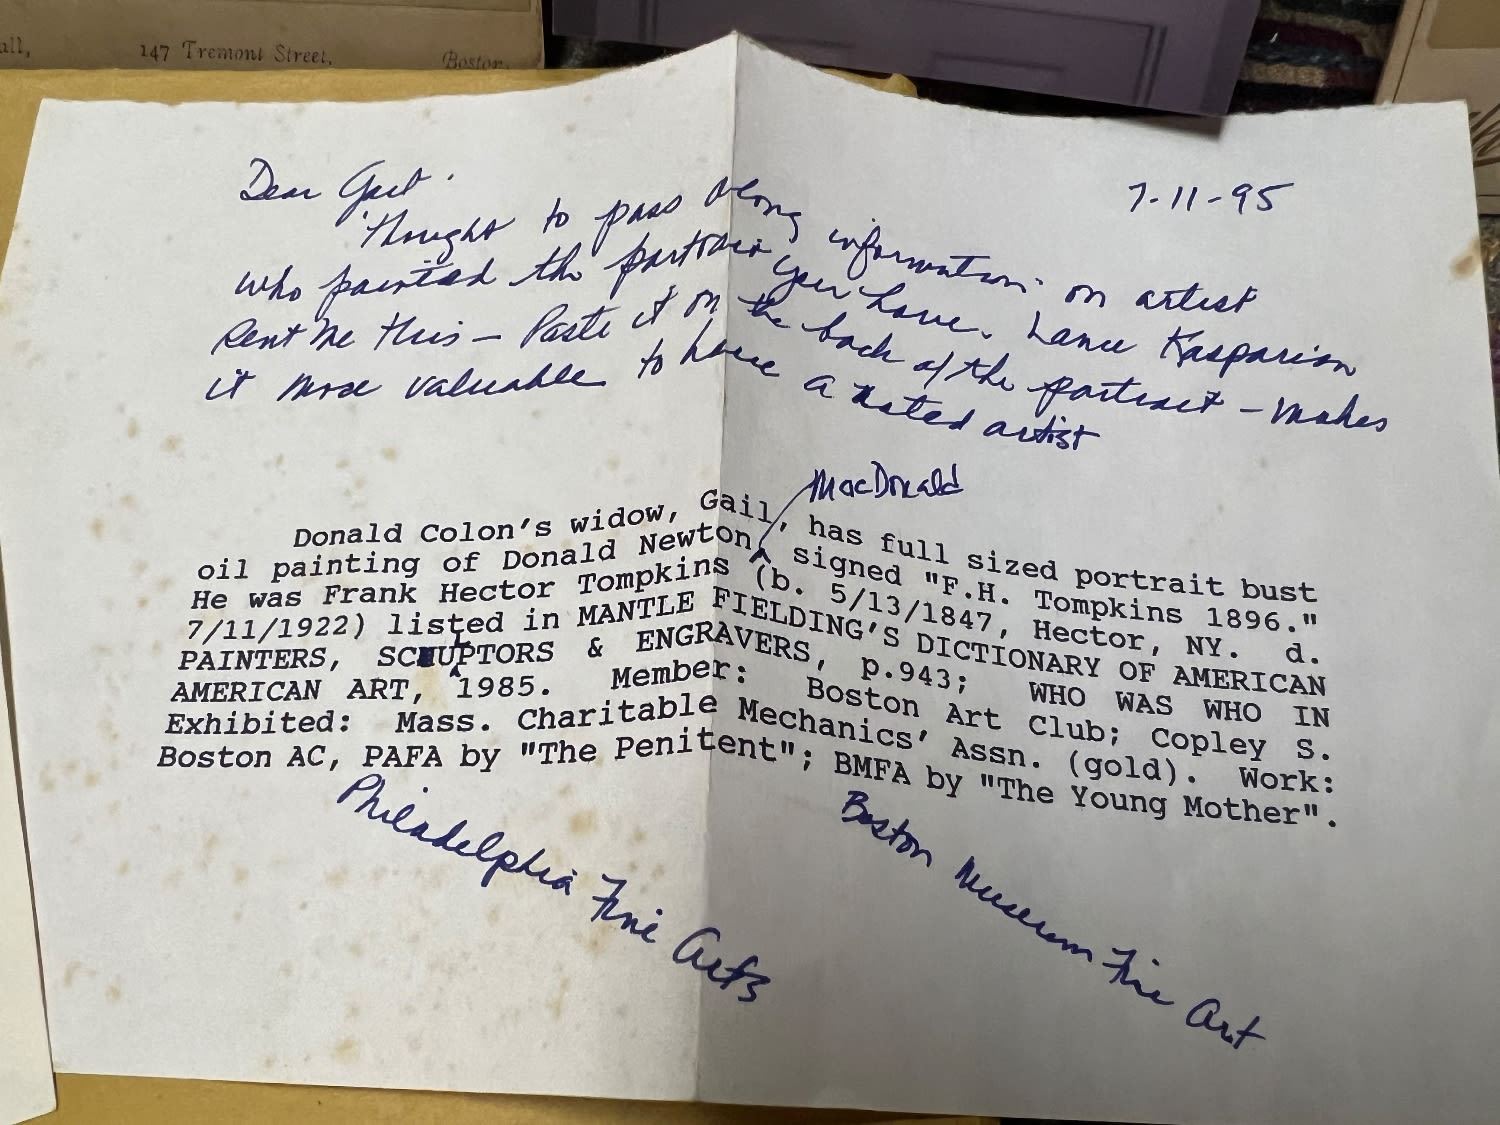 all, 147 Tremont Street, Boston.
7-11-95
Dear Gail.
Thought to pass along information on artist
who painted the portrait you have. Lance Kasparian
sent me this — Paste it on the back of the portrait — makes
it more valuable to have a noted artist
MacDonald
Donald Colon's widow, Gail, has full sized portrait bust
oil painting of Donald Newton, signed "F.H. Tompkins 1896."
He was Frank Hector Tompkins (b. 5/13/1847, Hector, NY. d.
7/11/1922) listed in MANTLE FIELDING'S DICTIONARY OF AMERICAN
PAINTERS, SCUPTORS & ENGRAVERS, p.943; WHO WAS WHO IN
AMERICAN ART, 1985. Member: Boston Art Club; Copley S.
Exhibited: Mass. Charitable Mechanics' Assn. (gold). Work:
Boston AC, PAFA by "The Penitent"; BMFA by "The Young Mother".
Philadelphia Fine Arts
Boston Museum Fine Art